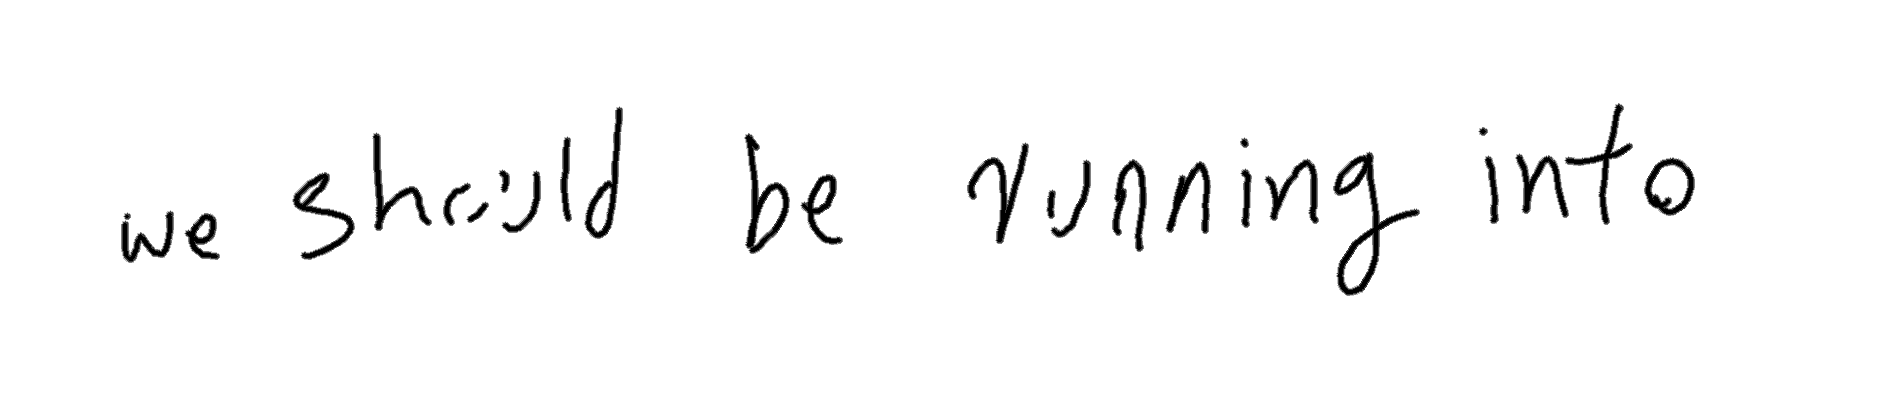 we should be running into